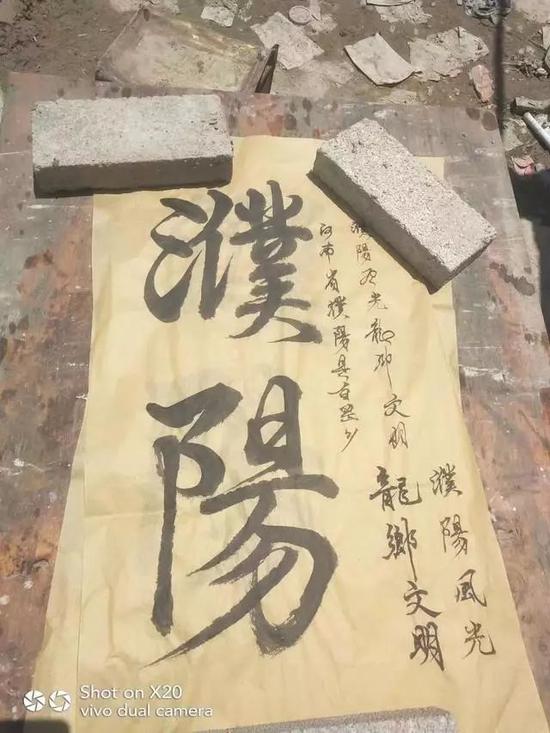 濮陽
濮陽风光龍鄉文明
河南省濮陽县白罡乡
濮陽風光
龍鄉文明
Shot on X20
vivo dual camera